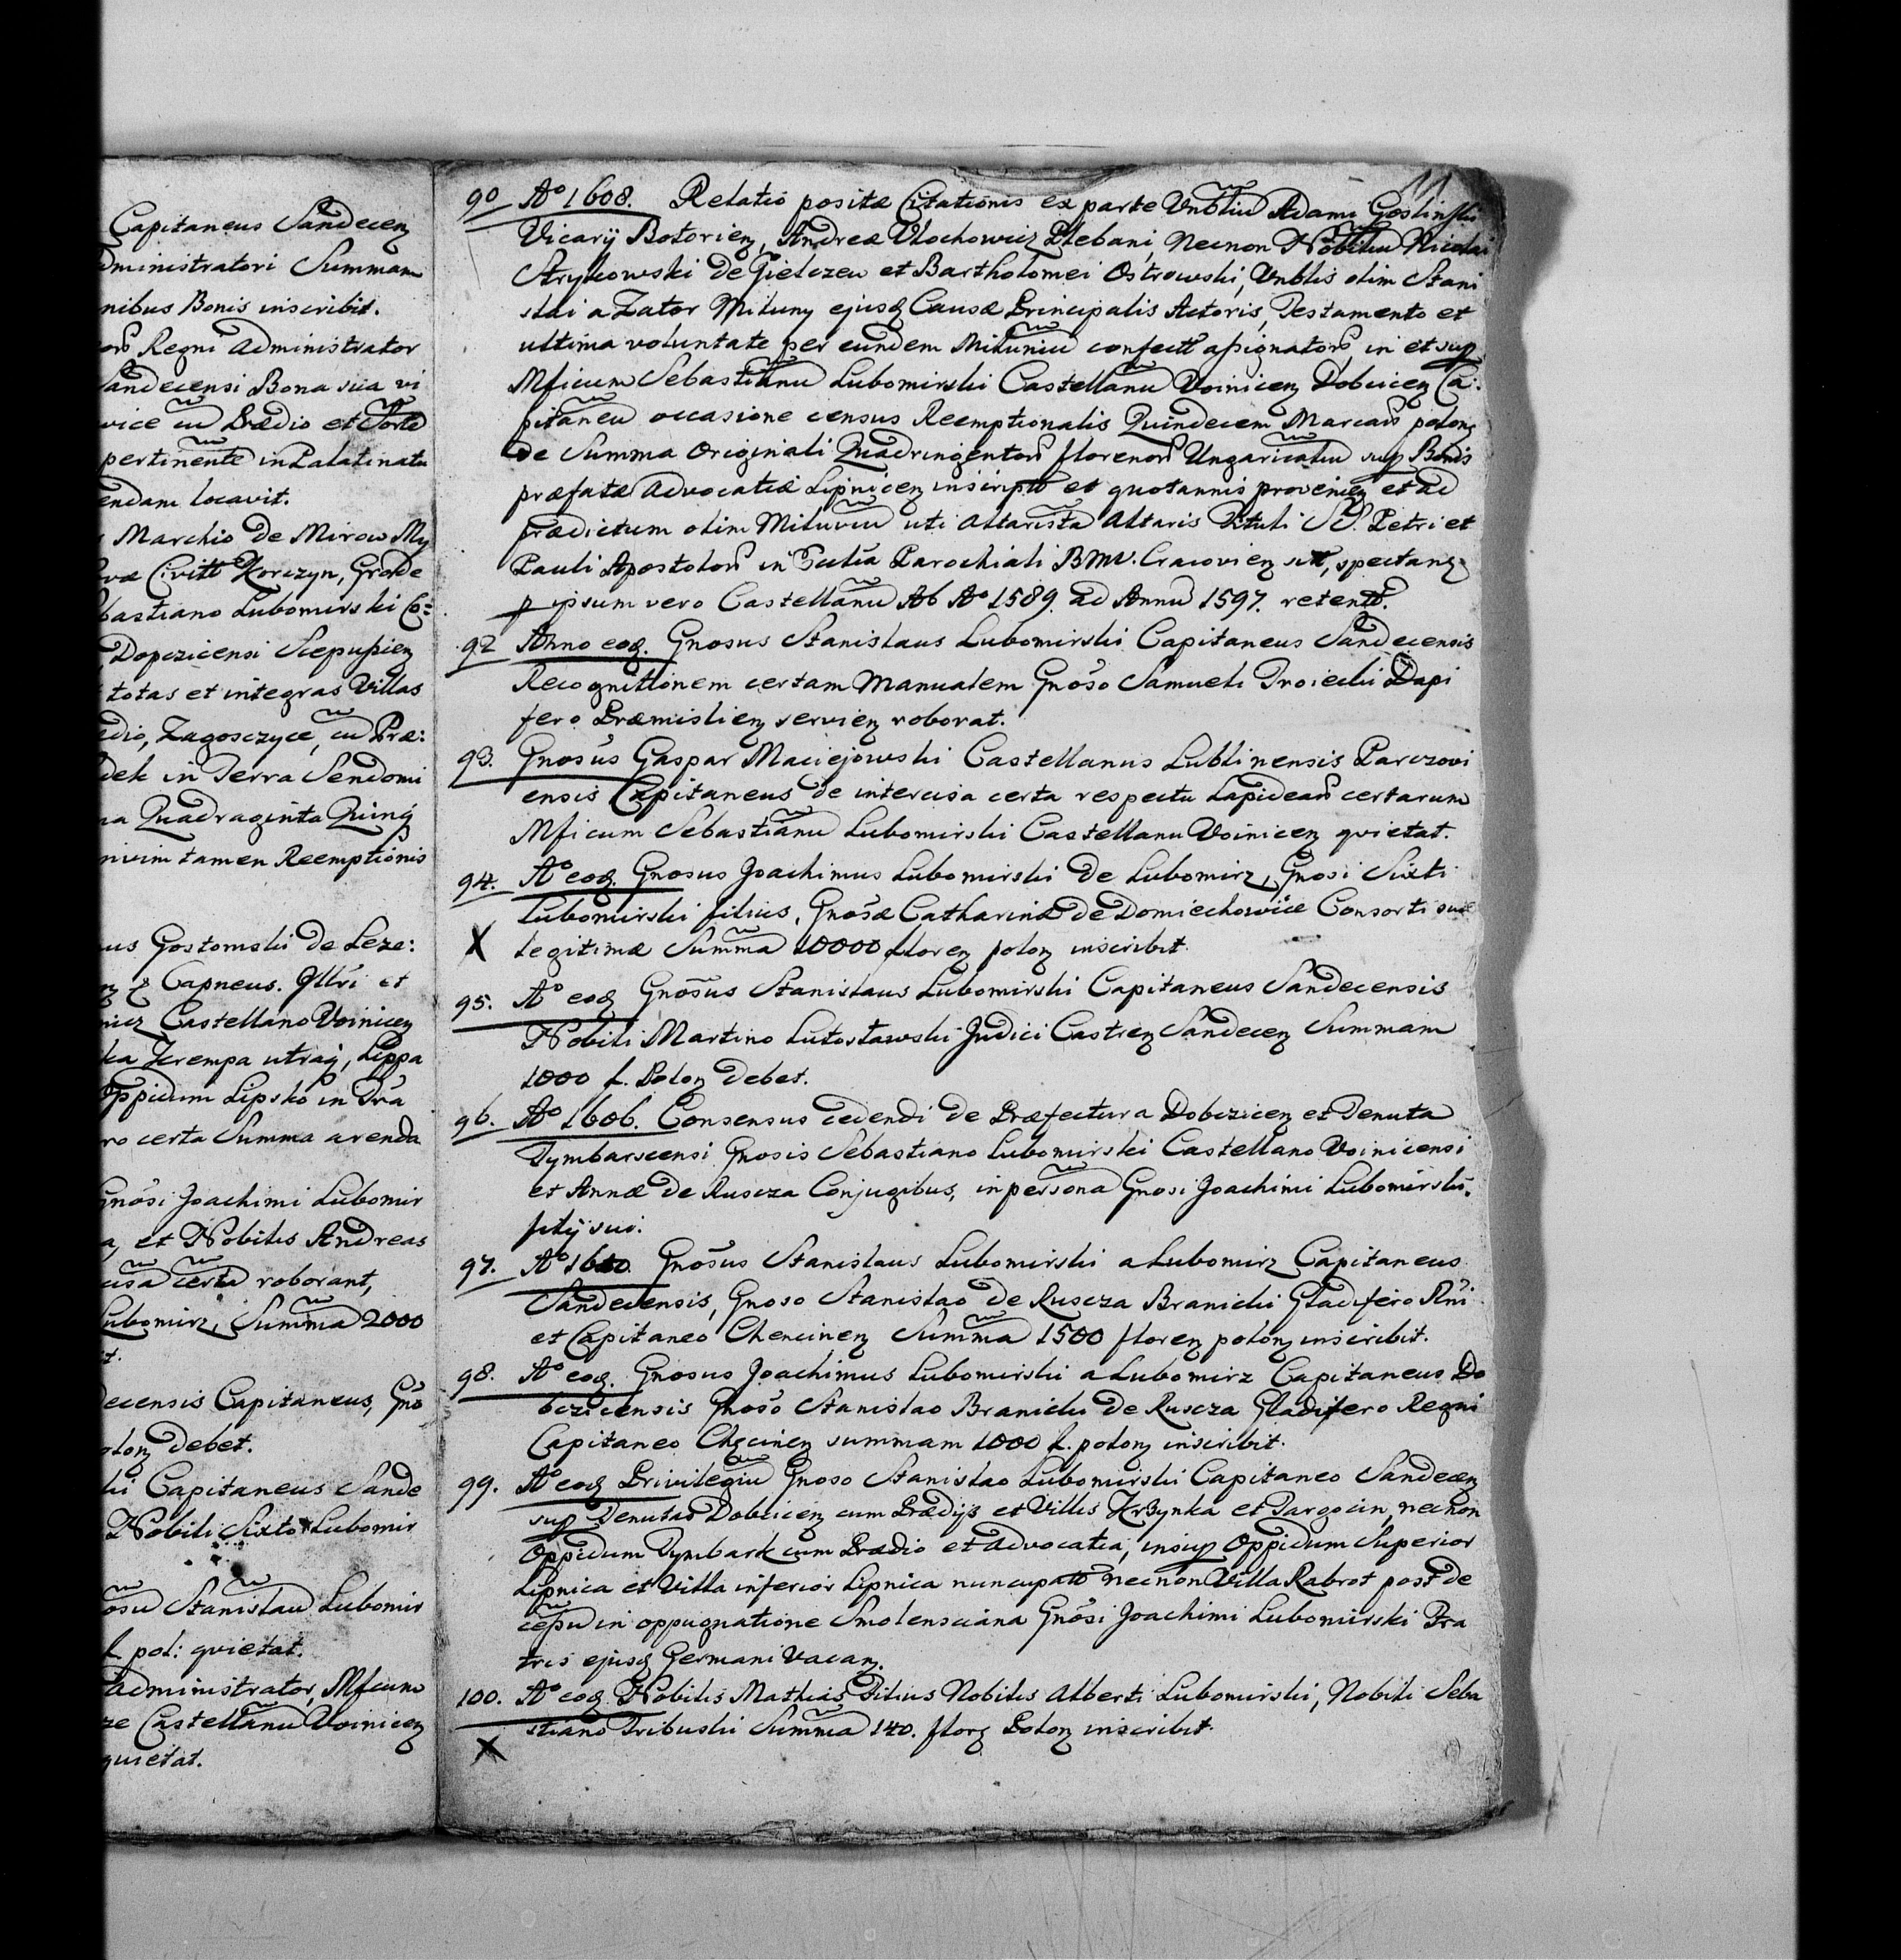 Capitaneus Sandecen
dministratori Summam
nibus Bonis inscribit.
Regni Administrator
andecensi Bona sua vi
vice cu Prædio et Sorte
pertinente in Palatinatu
endam locavit.
Marchio de Mirow My
væ Civitt Korczyn, Grode
bastiano Lubomirski Co:
Dopczicensi Scepusien
totas et integras Villas
edio, Zagosczyce, cu Præ:
dek in Terra Sendomi
na Quadraginta Quinq
nivim tamen Reemptionis
us Gostomski de Leze:
Capneus. Illri et
nicz Castellano Voinicen
ka Krempa utraq, Lippa
Oppidum Lipsko in Tra
ro certa Summa arenda
Gnosi Joachimi Lubomir
a, et Nobilis Andreas
cisa certa roborant,
Lubomirz, Summa 2000
t.
decensis Capitaneus, Gno
olon debet.
ki Capitaneus Sande
Nobili Sixto Lubomir
osu Stanislau Lubomir
f. pol: quietat.
administrator, Mficum
ze Castellanu Voinicen
quietat.
11
90 Aº 1608. Relatio positæ Citationis ex parte Vnbliu Adami Goslinski
Vicarij Botorien, Andreæ Vlochowicz Plebani, Necnon Nobiliu Nicolai
Strykowski de Gielczew et Bartholomei Ostrowski, Vnblis olim Stani
slai a Zator Miluny ejusq Causæ Principalis Actoris, Testamento et
ultima voluntate per eundem Miluniu confectt assignator, in et sup
Mficum Sebastianu Lubomirski Castellanu Voinicen Dobcicen Ca:
pitaneu occasione census Reemptionalis Quindecem Marcar polon
de Summa Originali Quadringentor florenor Ungaricaliu sup Bonis
præfatæ Advocatiæ Lipnicen inscriptt et quotannis provenien et ad
prædictum olim Miluniu uti Altarista Altaris Tituli SS. Petri et
Pauli Apostolor in Eccla Parochiali BMV. Cracovien sitt, spectan
p ipsum vero Castellanu Ab Aº 1589. ad Annu 1597. retentt.
92 Anno eoq. Gnosus Stanislaus Lubomirski Capitaneus Sandecensis
Recognitionem certam Manualem Gnoso Samueli Troiecki Dapi
fero Præmislien servien roborat.
93. Gnosus Gaspar Maciejowski Castellanus Lublinensis Parczovi
ensis Capitaneus de intercisa certa respectu Lapidear certarum
Mficum Sebastianu Lubomirski Castellanu Voinicen quietat.
94. Aº eoq. Gnosus Joachimus Lubomirski de Lubomirz, Gnosi Sixti
Lubomirski filius, Gnosæ Catharinæ de Domiechowice Consorti suæ
X legitimæ Summa 10000 floren polon inscribit.
95. Aº eoq Gnosus Stanislaus Lubomirski Capitaneus Sandecensis
Nobili Martino Lutostawski Judici Castren Sandecen Summam
1000 f. Polon debet.
96. Aº 1606. Consensus cedendi de Præfectura Dobczicen et Tenuta
Tymbarscensi Gnosis Sebastiano Lubomirski Castellano Voinicensi
et Annæ de Ruscza Conjugibus, in persona Gnosi Joachimi Lubomirski.
filij sui.
97. Aº 1610. Gnosus Stanislaus Lubomirski a Lubomirz Capitaneus
Sandecensis, Gnoso Stanislao de Ruscza Branicki Gladifero Rni
et Capitaneo Chencinen Summa 1500 floren polon inscribit.
98. Aº eoq. Gnosus Joachimus Lubomirski a Lubomirz Capitaneus Do
bczicensis Gnoso Stanislao Branicki de Ruscza Gladifero Regni
Capitaneo Checinen summam 1000 f. polon inscribit.
99. Aº eoq Privilegiu Gnoso Stanislao Lubomirski Capitaneo Sandecen
sup Tenutas Dobcicen cum Prædijs et Villis Krzynka et Targocin, necnon
Oppidum Tymbark cum Prædio et Advocatia, insup Oppidum Superior
Lipnica et Villa inferior Lipnica nuncupatt necnon Villa Rabrot post de
cessu in oppugnatione Smolensciana Gnosi Joachimi Lubomirski Fra
tris ejusq Germani Vacan.
100. Aº eoq Nobilis Mathias, Filius Nobilis Alberti Lubomirski, Nobili Seba
stiano Tribuski Summa 140. flor Polon inscribit.
X